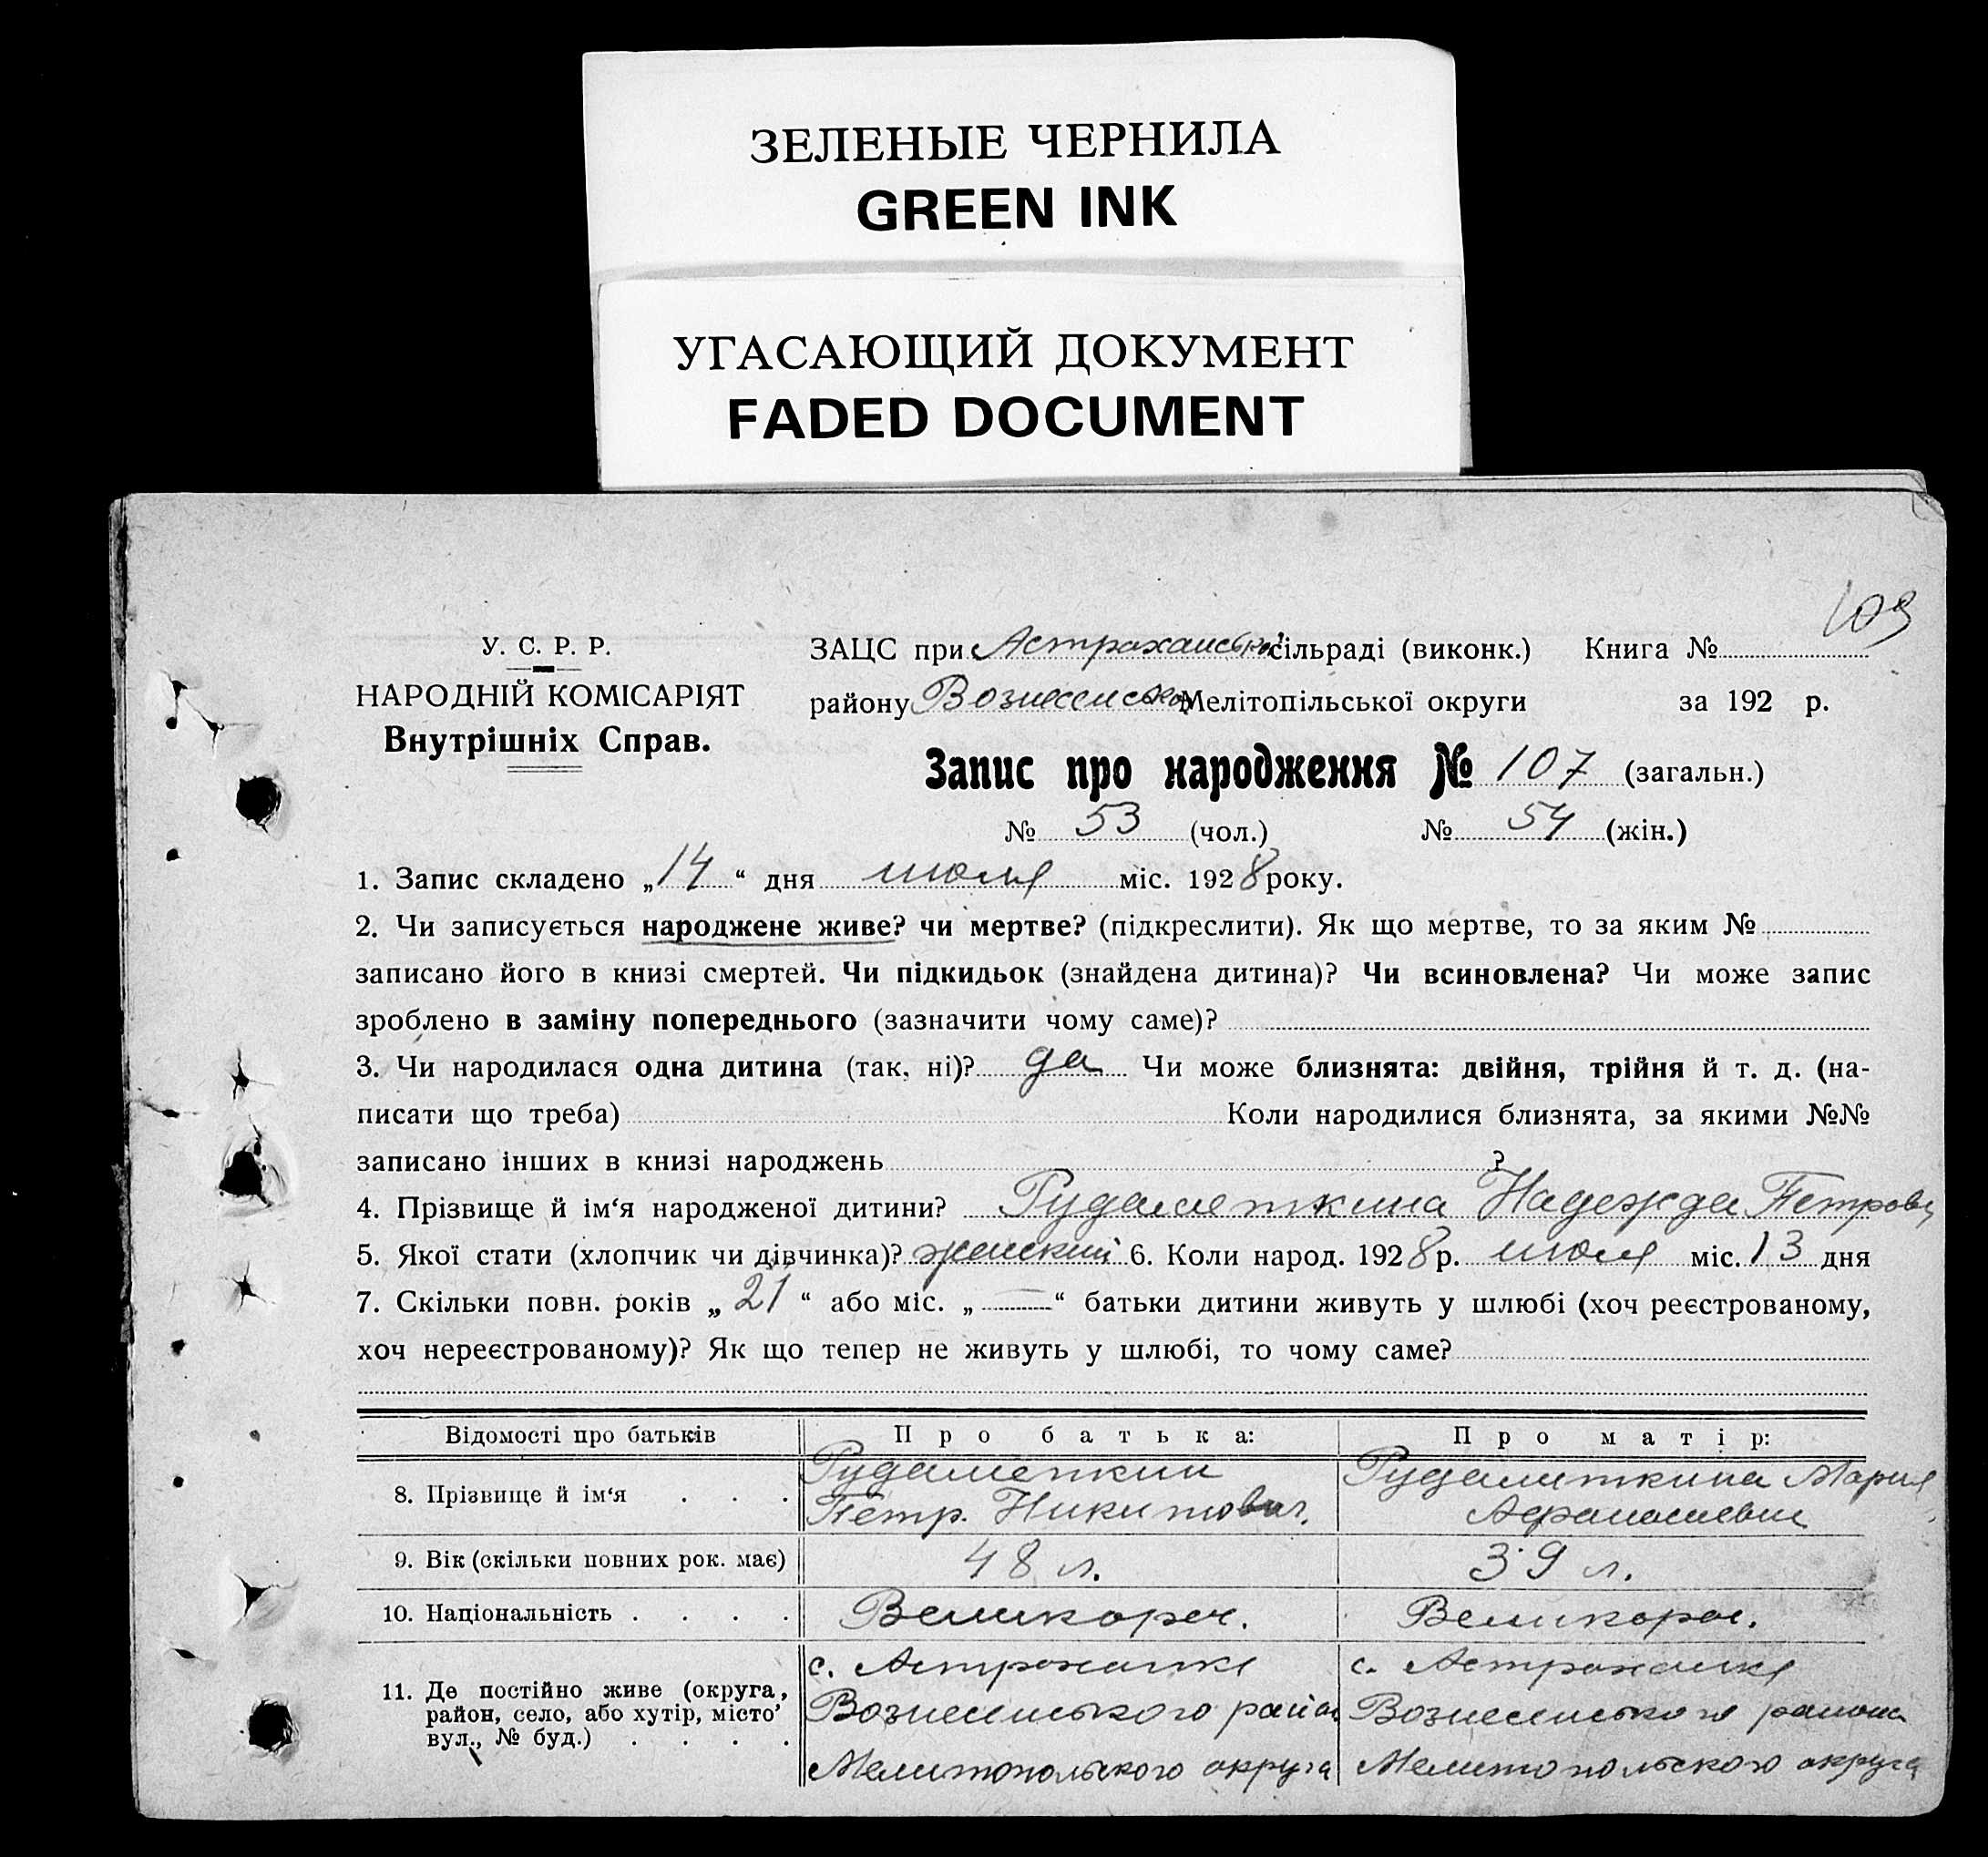 ЗЕЛЕНЫЕ ЧЕРНИЛА
GREEN INK
УГАСАЮЩИЙ ДОКУМЕНТ
FADED DOCUMENT
109
У. С. Р. Р.
НАРОДНІЙ КОМІСАРІЯТ
Внутрішніх Справ.
ЗАЦС при Астраханській сільраді (виконк.) Книга №
району Вознесенськ. Мелітопільської округи за 192 р.
Запис про народження № 107 (загальн.)
№ 53 (чол.) № 54 (жін.)
1. Запис складено „14“ дня июля міс. 1928 року.
2. Чи записується народжене живе? чи мертве? (підкреслити). Як що мертве, то за яким №
записано його в книзі смертей. Чи підкидьок (знайдена дитина)? Чи всиновлена? Чи може запис
зроблено в заміну попереднього (зазначити чому саме)?
3. Чи народилася одна дитина (так, ні)? да Чи може близнята: двійня, трійня й т. д. (на-
писати що треба) Коли народилися близнята, за якими №№
записано інших в книзі народжень ?
4. Прізвище й ім‘я народженої дитини? Рудаметкина Надежда Петровн
5. Якої стати (хлопчик чи дівчинка)? женский 6. Коли народ. 1928 р. июля міс. 13 дня
7. Скільки повн. років „21“ або міс. „—“ батьки дитини живуть у шлюбі (хоч реєстрованому,
хоч нереєстрованому)? Як що тепер не живуть у шлюбі, то чому саме?
Відомості про батьків Про батька: Про матір:
8. Прізвище й ім‘я . . . Рудаметкин Петр. Никитович. Рудаметкина Мария Афанасиевн
9. Вік (скільки повних рок. має) 48 л. 39 л.
10. Національність . . . . Великорос. Великорос.
11. Де постійно живе (округа, район, село, або хутір, місто, вул., № буд.) . . . .
с. Астраханке с. Астраханке
Вознесенського район Вознесенського района
Мелитопольского округа Мелитопольского округа